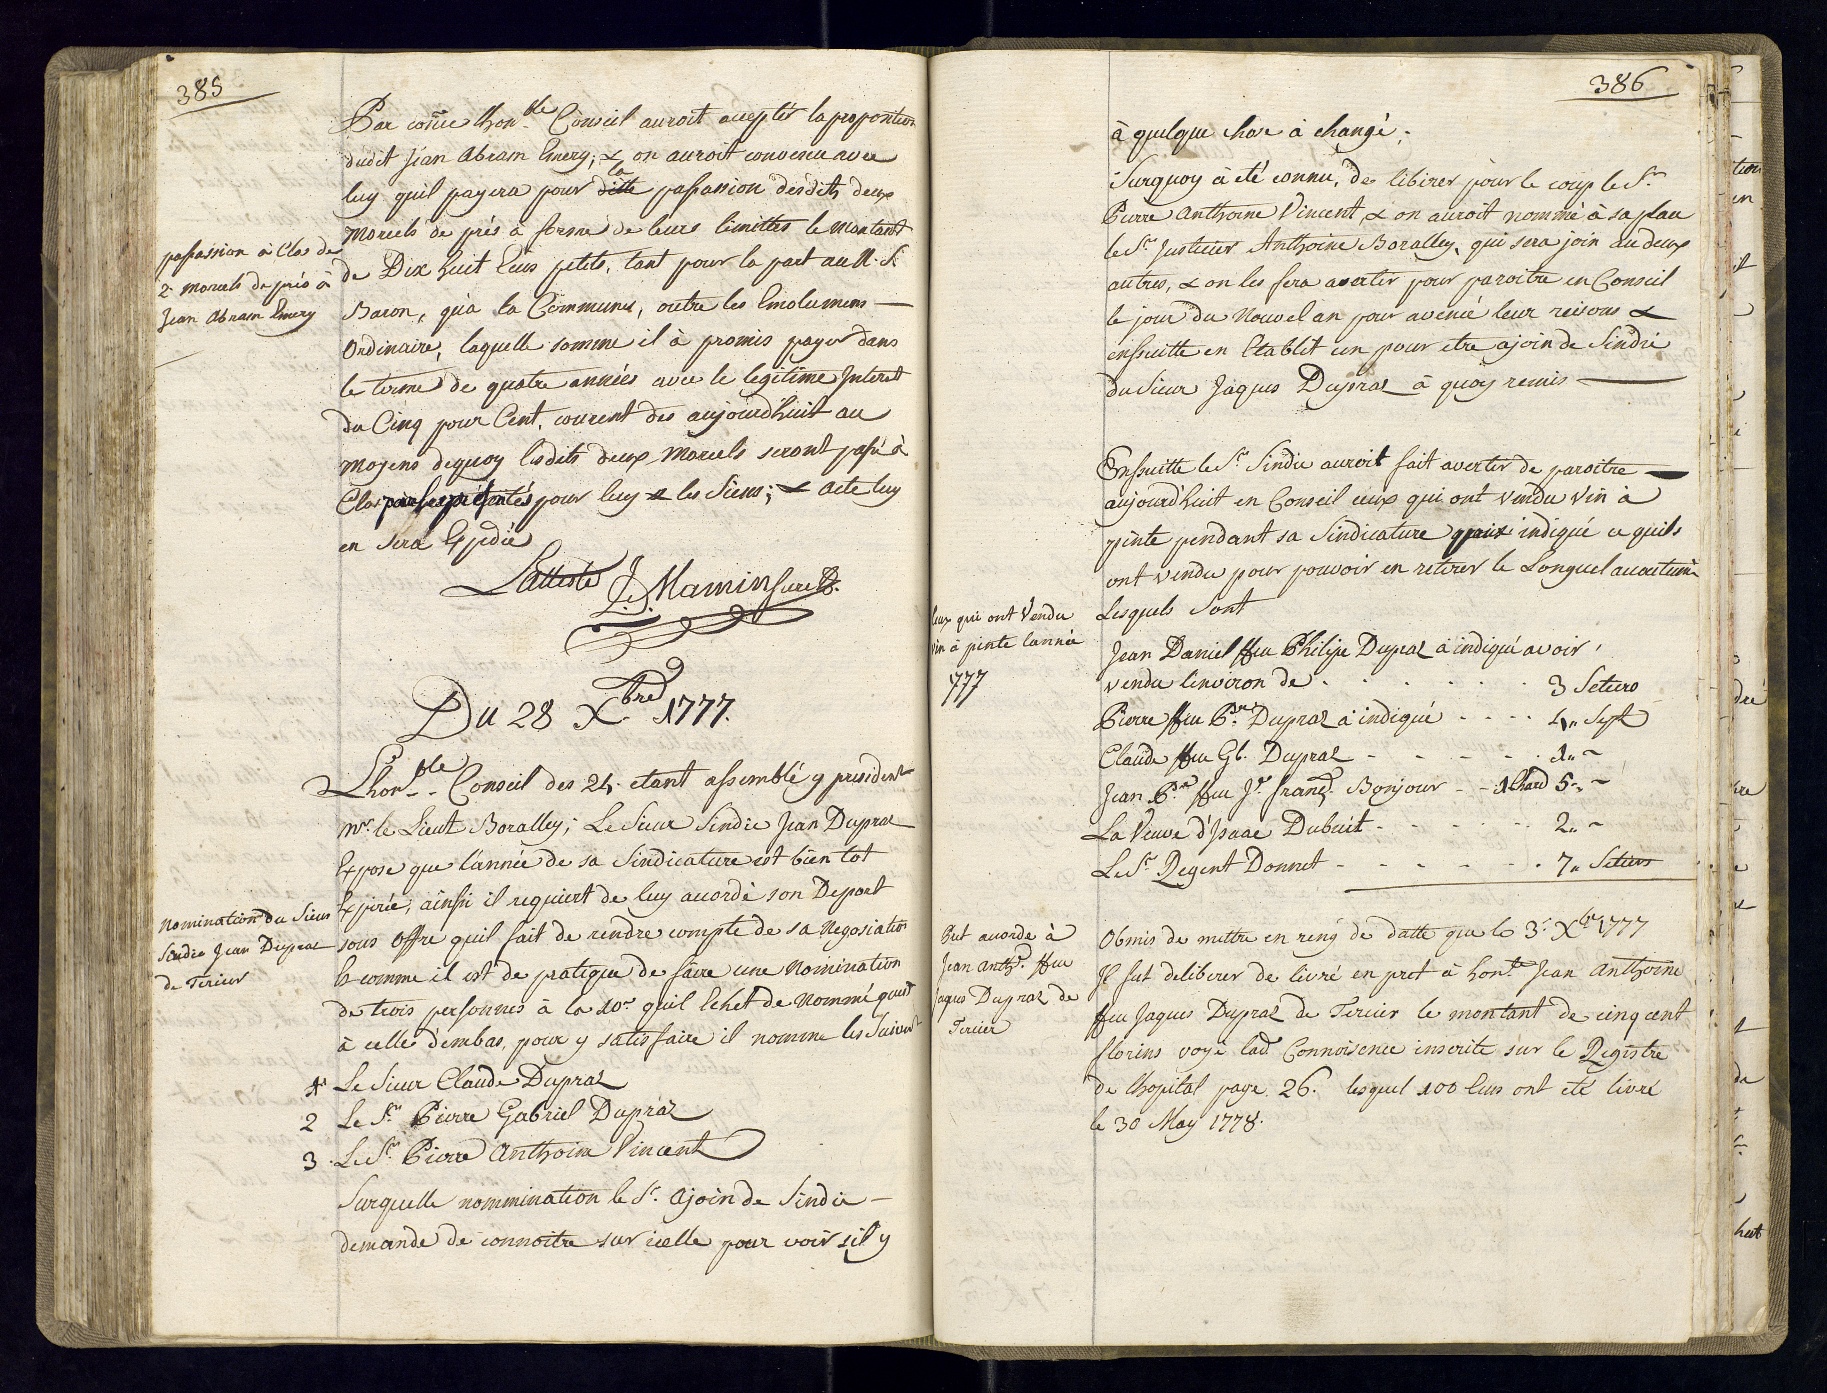 385
Par conñue lhon.ble Conseil auroit acceptér la proposition
dudit Jean Abram Emery; & on auroit convenu avec
luy quil payera pour la ditte passassion desdits deux
Morcels de prés à forme de leurs limittes le montant
de Dix huit Ecus petits, tant pour la part au N. S.
Baron, qu'a la Commune, outre les Emolumens
Ordinaire, laquelle somme il à promis payer dans
le terme de quatre années avec le legitime Interet
du Cinq pour Cent, courent des aujourd'huit au
Moyens dequoy lesdits deux Morcels seront passé à
Clos par les présentés pour luy & les Siens; & Acte luy
en sera Expedié
passassion à Clos de
2 Morcels de prés à
Jean Abram Emery
L'atteste J. D. Mamin Secret.
Du 28 Xbre 1777.
L'hon.ble Conseil des 24. etant assemblé y president
Mr. le Lieut Boralley; Le Sieur Sindic Jean Dupraz
Expose que l'année de sa Sindicature est bien tot
Expirée, ainsi il requiert de luy accordé son Deport
sous Offre quil fait de rendre compte de sa Negosiation
& comme il est de pratique de faire une Nomination
de trois personnes à la 10e quil Echet de Nommé quand
à celle d'embas, pour y satisfaire il nomme les Suivant
Nomination du Sieur
Sindic Jean Dupraz
de Tercier
1 Le Sieur Claude Dupraz
2 Le Sr. Pierre Gabriel Dupraz
3. Le Sr. Pierre Anthoine Vincent
Surquelle nommination le Sr. Ajoin de Sindic
demande de connoitre sur icelle pour voir sil y
386
à quelque chose à changé.
Surquoy à été connu, de libérer pour le coup le Sr.
Pierre Anthoine Vincent, & on auroit nommé à sa place
le Sr. Justicier Anthoine Boralley, qui sera join au deux
autres, & on les fera avertir pour paroitre en Conseil
le jour du Nouvel an pour avencé leur reisons &
ensuitte en Etablit un pour etre ajoin de Sindic
du Sieur Jaques Dupraz à quoy remis
Ensuitte le Sr. Sindic auroit fait avertir de paroitre
aujourd'huit en Conseil ceux qui ont vendu Vin à
pinte pendant sa Sindicature indiqué ce quils
ont vendu pour pouvoir en retirer le Longuel accoutumé
Lesquels sont
Ceux qui ont Vendu
vin à pinte l'année
1777
Jean Daniel ffeu Philipe Dupraz à indiqué avoir
vendu l'environ de . . . . . . 3 Setiers
Pierre ffeu P.re Dupraz à indiqué . . . . 4„ Sept
Claude ffeu Gb. Dupraz - - - - - 1„ ~
Jean P.re ffeu J. franç. Bonjour - - 1 Chard 5„ ~
La Veuve d'Isaac Dubuit - - - - - 2„ ~
Le Sr. Regent Donnet - - - - - - 7„ Setiers
Obmis de mettre en reng de datte que le 3e Xbre 1777
Il fut deliberer de livré en pret à hon.ble Jean Anthoine
ffeu Jaques Dupraz de Tercier le montant de cinq cent
florins voyé lad. Connoisence inscrite sur le Registre
de lhopital page 26. lesquel 100 Ecus ont eté livré
le 30 May 1778.
Pret accorde à
Jean Anth.e ffeu
Jaques Dupraz de
Tercier